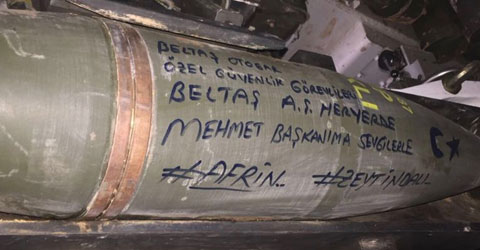 BELTAŞ OTOPARK
ÖZEL GÜVENLİK GÖREVLİLERİ
BELTAŞ A.Ş. HERYERDE
MEHMET BAŞKANIMA SEVGİLERLE
#AFRİN.. #ZEYTİNDALI